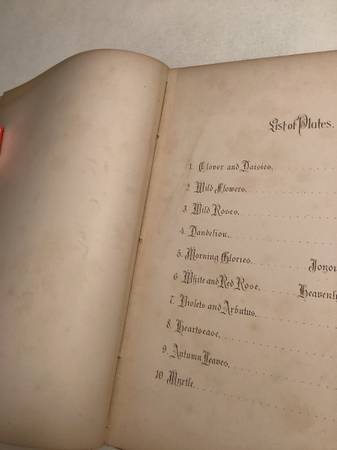 List of Plates.
1. Clover and Daisies.
2. Wild Flowers.
3. Wild Roses.
4. Dandelion.
5. Morning Glories.
6. White and Red Rose.
7. Violets and Arbutus.
8. Heartsease.
9. Autumn Leaves.
10. Myrtle.